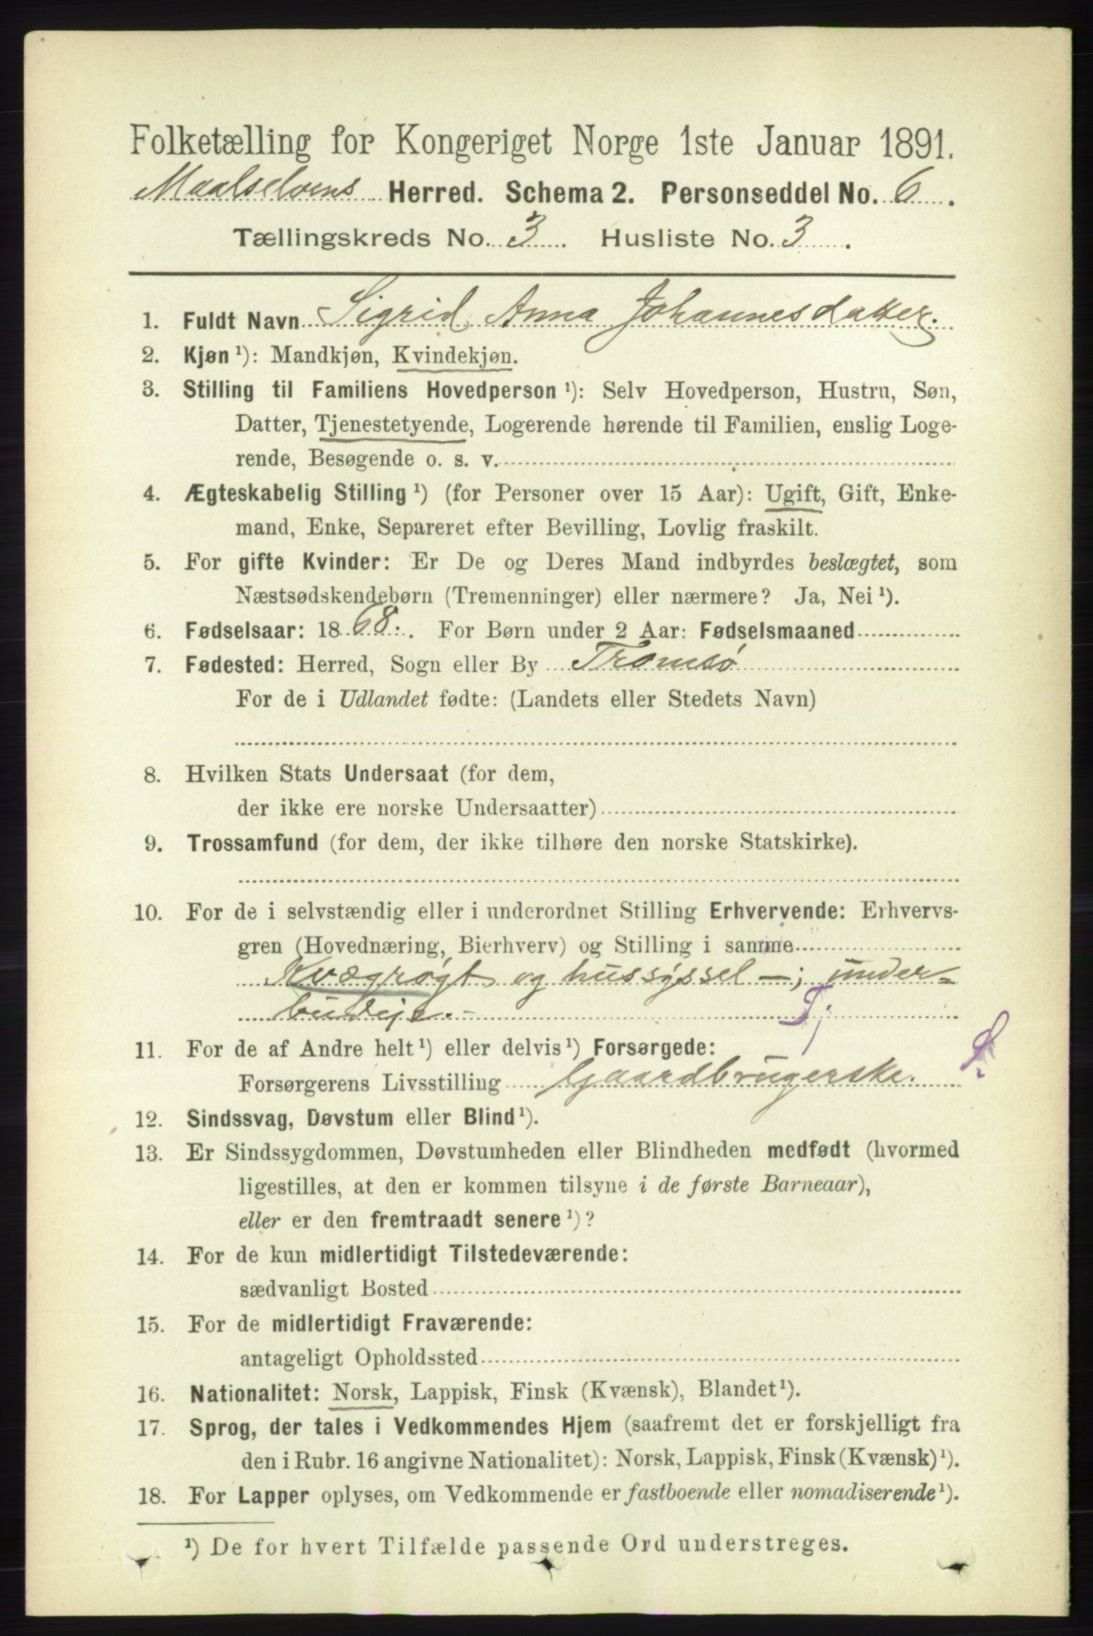 Folketælling for Kongeriget Norge 1ste Januar 1891.
Maalselvens Herred. Schema 2. Personseddel No. 6.
Tællingskreds No. 3. Husliste No. 3.
1. Fuldt Navn Sigrid Anna Johannesdatter.
2. Kjøn ¹): Mandkjøn, Kvindekjøn.
3. Stilling til Familiens Hovedperson ¹): Selv Hovedperson, Hustru, Søn,
Datter, Tjenestetyende, Logerende hørende til Familien, enslig Loge-
rende, Besøgende o. s. v.
4. Ægteskabelig Stilling ¹) (for Personer over 15 Aar): Ugift, Gift, Enke-
mand, Enke, Separeret efter Bevilling, Lovlig fraskilt.
5. For gifte Kvinder: Er De og Deres Mand indbyrdes beslægtet, som
Næstsødskendebørn (Tremenninger) eller nærmere? Ja, Nei ¹).
6. Fødselsaar: 1868. For Børn under 2 Aar: Fødselsmaaned
7. Fødested: Herred, Sogn eller By Tromsø
For de i Udlandet fødte: (Landets eller Stedets Navn)
8. Hvilken Stats Undersaat (for dem,
der ikke ere norske Undersaatter)
9. Trossamfund (for dem, der ikke tilhøre den norske Statskirke).
10. For de i selvstændig eller i underordnet Stilling Erhvervende: Erhvervs-
gren (Hovednæring, Bierhverv) og Stilling i samme
Kvægrøgt og hussyssel —; under=
budeje. - Tj
11. For de af Andre helt ¹) eller delvis ¹) Forsørgede:
Forsørgerens Livsstilling Gaardbrugerske.
12. Sindssvag, Døvstum eller Blind ¹).
13. Er Sindssygdommen, Døvstumheden eller Blindheden medfødt (hvormed
ligestilles, at den er kommen tilsyne i de første Barneaar),
eller er den fremtraadt senere ¹)?
14. For de kun midlertidigt Tilstedeværende:
sædvanligt Bosted
15. For de midlertidigt Fraværende:
antageligt Opholdssted
16. Nationalitet: Norsk, Lappisk, Finsk (Kvænsk), Blandet ¹).
17. Sprog, der tales i Vedkommendes Hjem (saafremt det er forskjelligt fra
den i Rubr. 16 angivne Nationalitet): Norsk, Lappisk, Finsk (Kvænsk) ¹).
18. For Lapper oplyses, om Vedkommende er fastboende eller nomadiserende ¹).
¹) De for hvert Tilfælde passende Ord understreges.